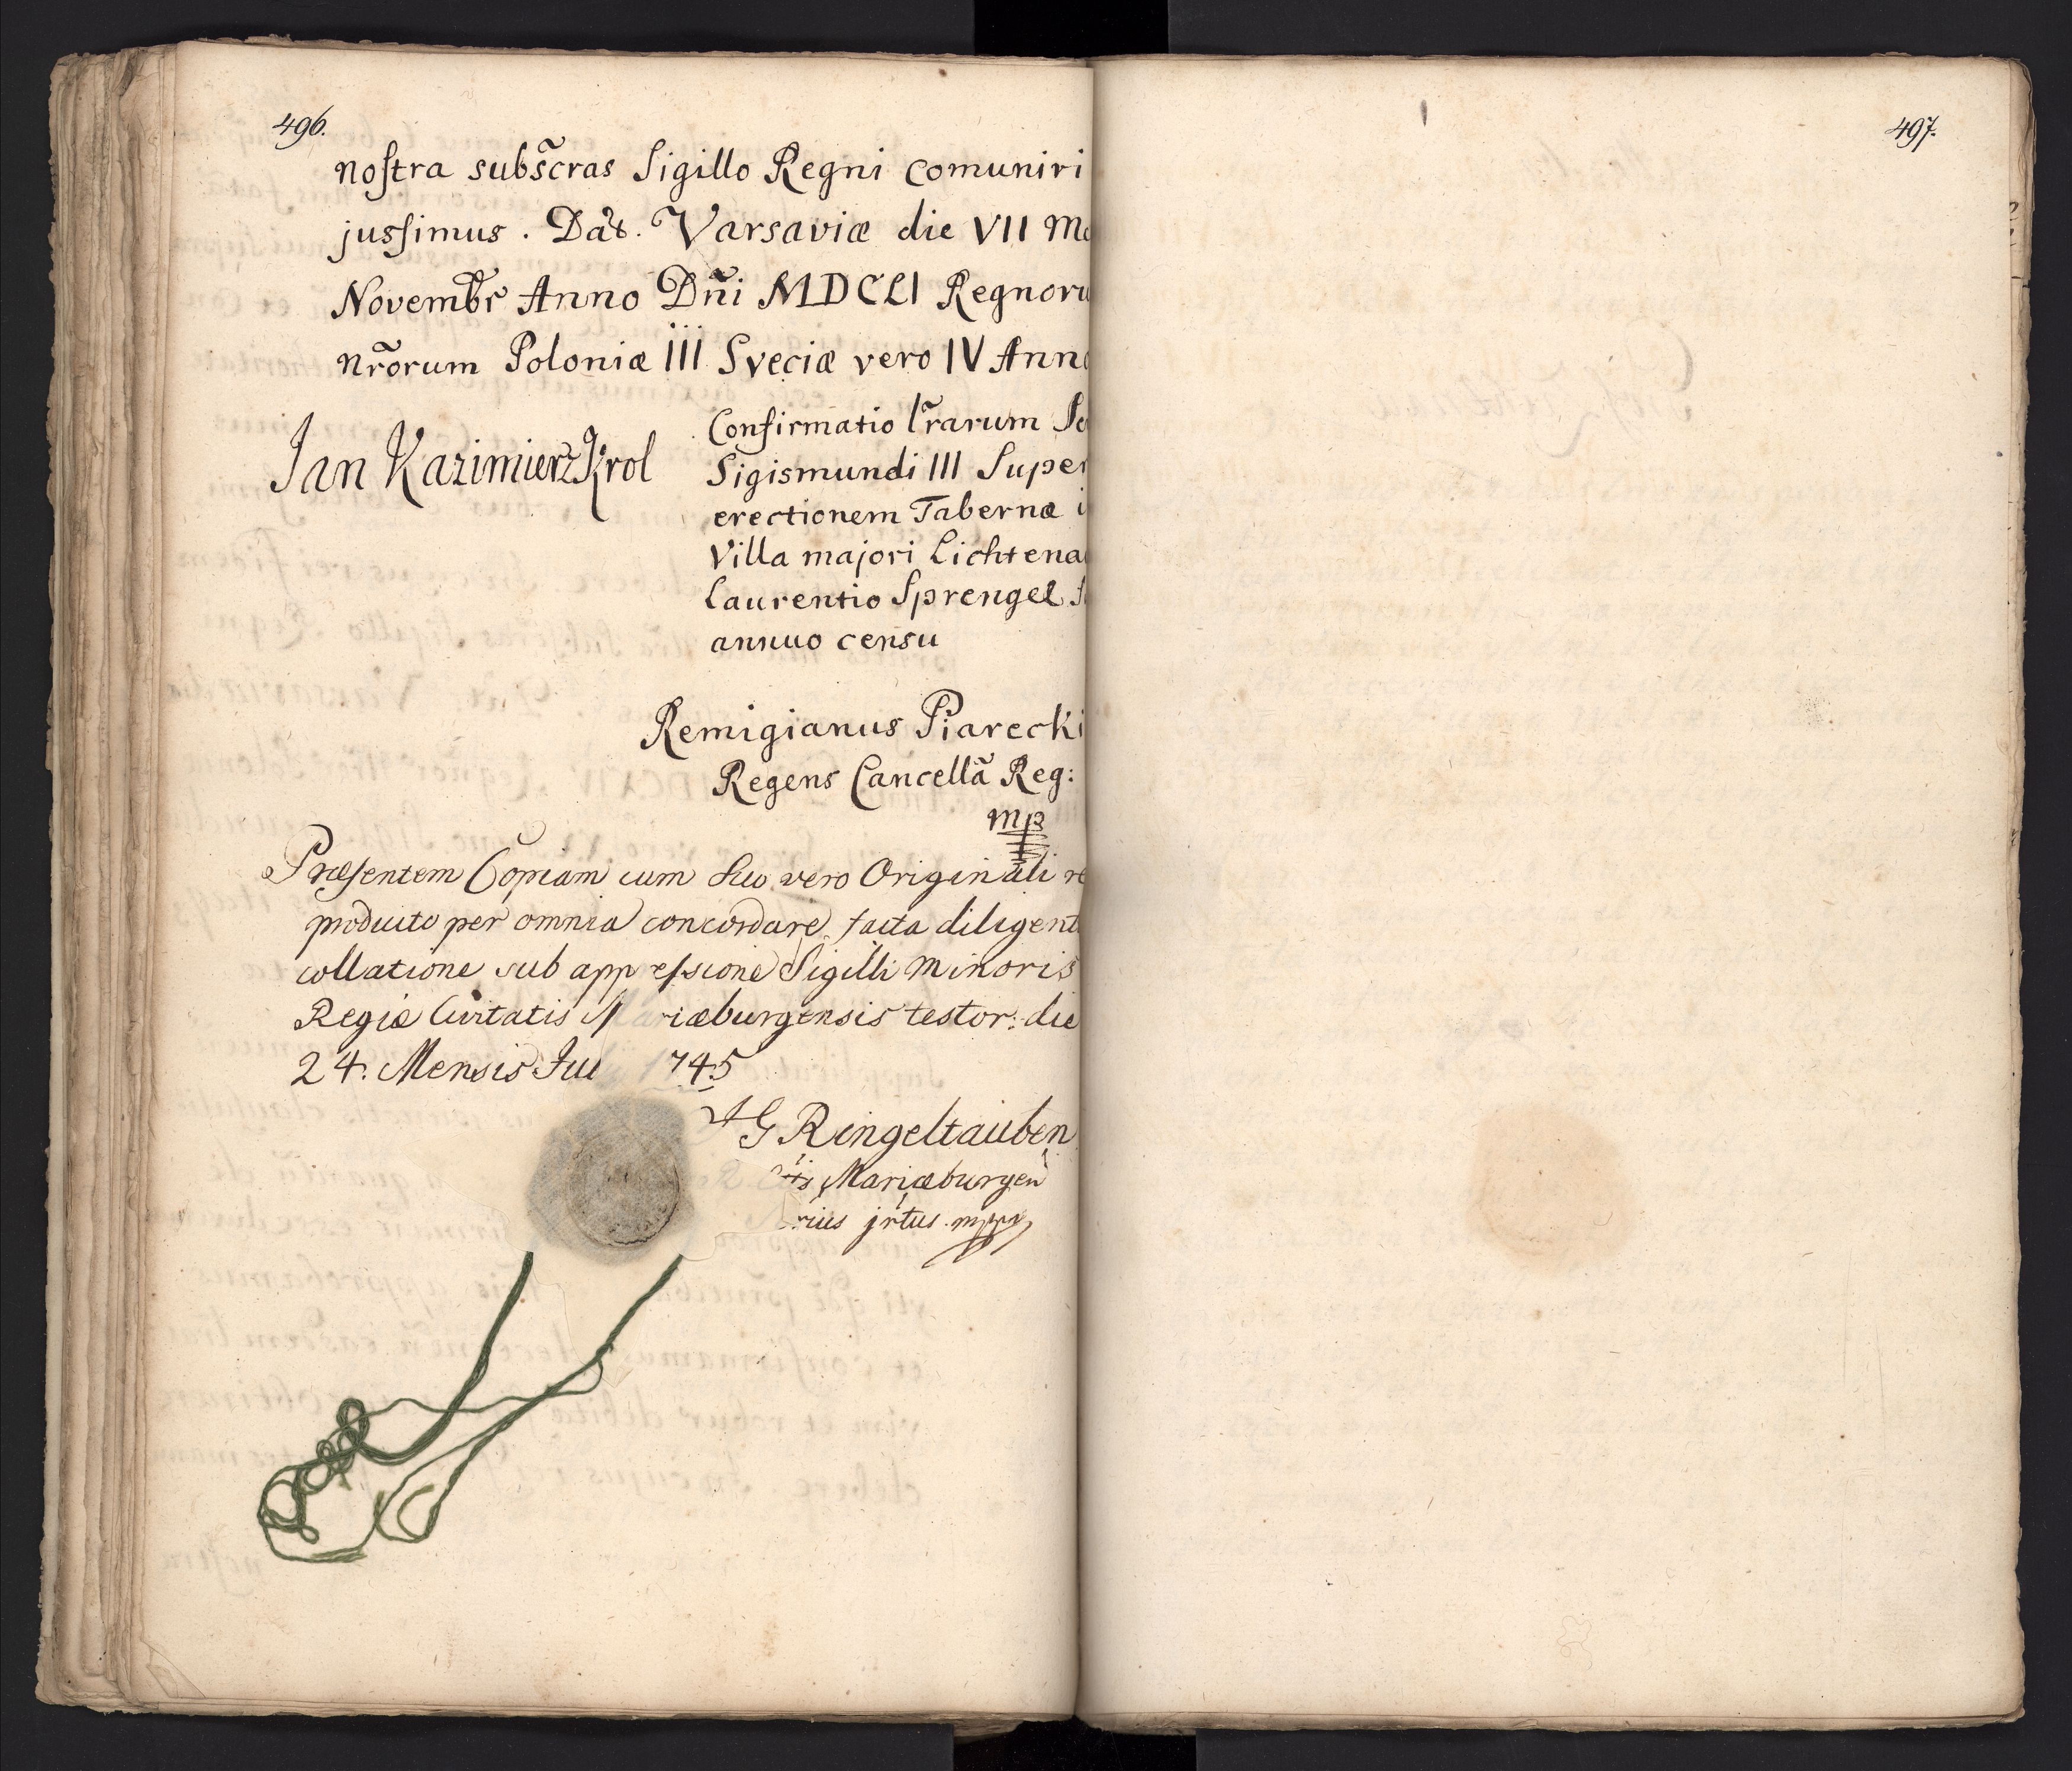 496.
nostra subscr̃as Sigillo Regni comuniri
jussimus. Dat. Varsaviæ die VII
Novembr Anno Dn̄i MDCLI
nr̃orum Poloniæ III Sveciæ vero IV
Jan Kazimierz Krol
Confirmatio lr̃arum
Sigismundi III
erectionem Tabernæ
Villa majori
Laurentio Sprengel
annuo censu
Remigianus Piarecki
Regens Cancellã Reg:
mp
Præsentem Copiam cum suo vero Originali
producto per omnia concordare, facta
collatione sub appressione Sigilli minoris
Regiæ Civitatis testor: die
24. Mensis 1745
Ringeltauben
Mariæburgen
jrtus mppr
497.